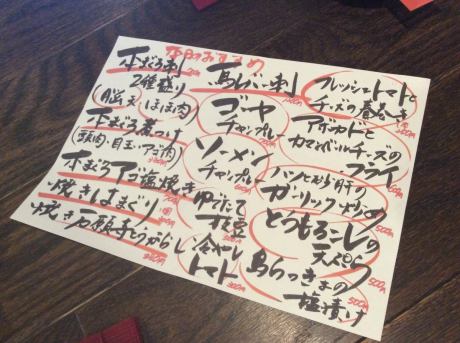 本日のおすすめ
本まぐろ刺
2種盛り
(脳天 ほほ肉)
本まぐろ煮つけ
(頭肉・目玉・アゴ肉)
本まぐろアゴ塩焼き
焼きはまぐり
焼き万願寺とうがらし
島だこ刺
ゴーヤ
チャンプルー
ソーメン
チャンプルー
ゆでたて
枝豆
冷やし
トマト
300円
フレッシュトマトと
チーズの春巻き
アボカドと
カマンベールチーズの
フライ
ハツと砂肝の
ガーリック炒め
500円
とうもろこしの
天ぷら
500円
島らっきょの
塩漬け
500円